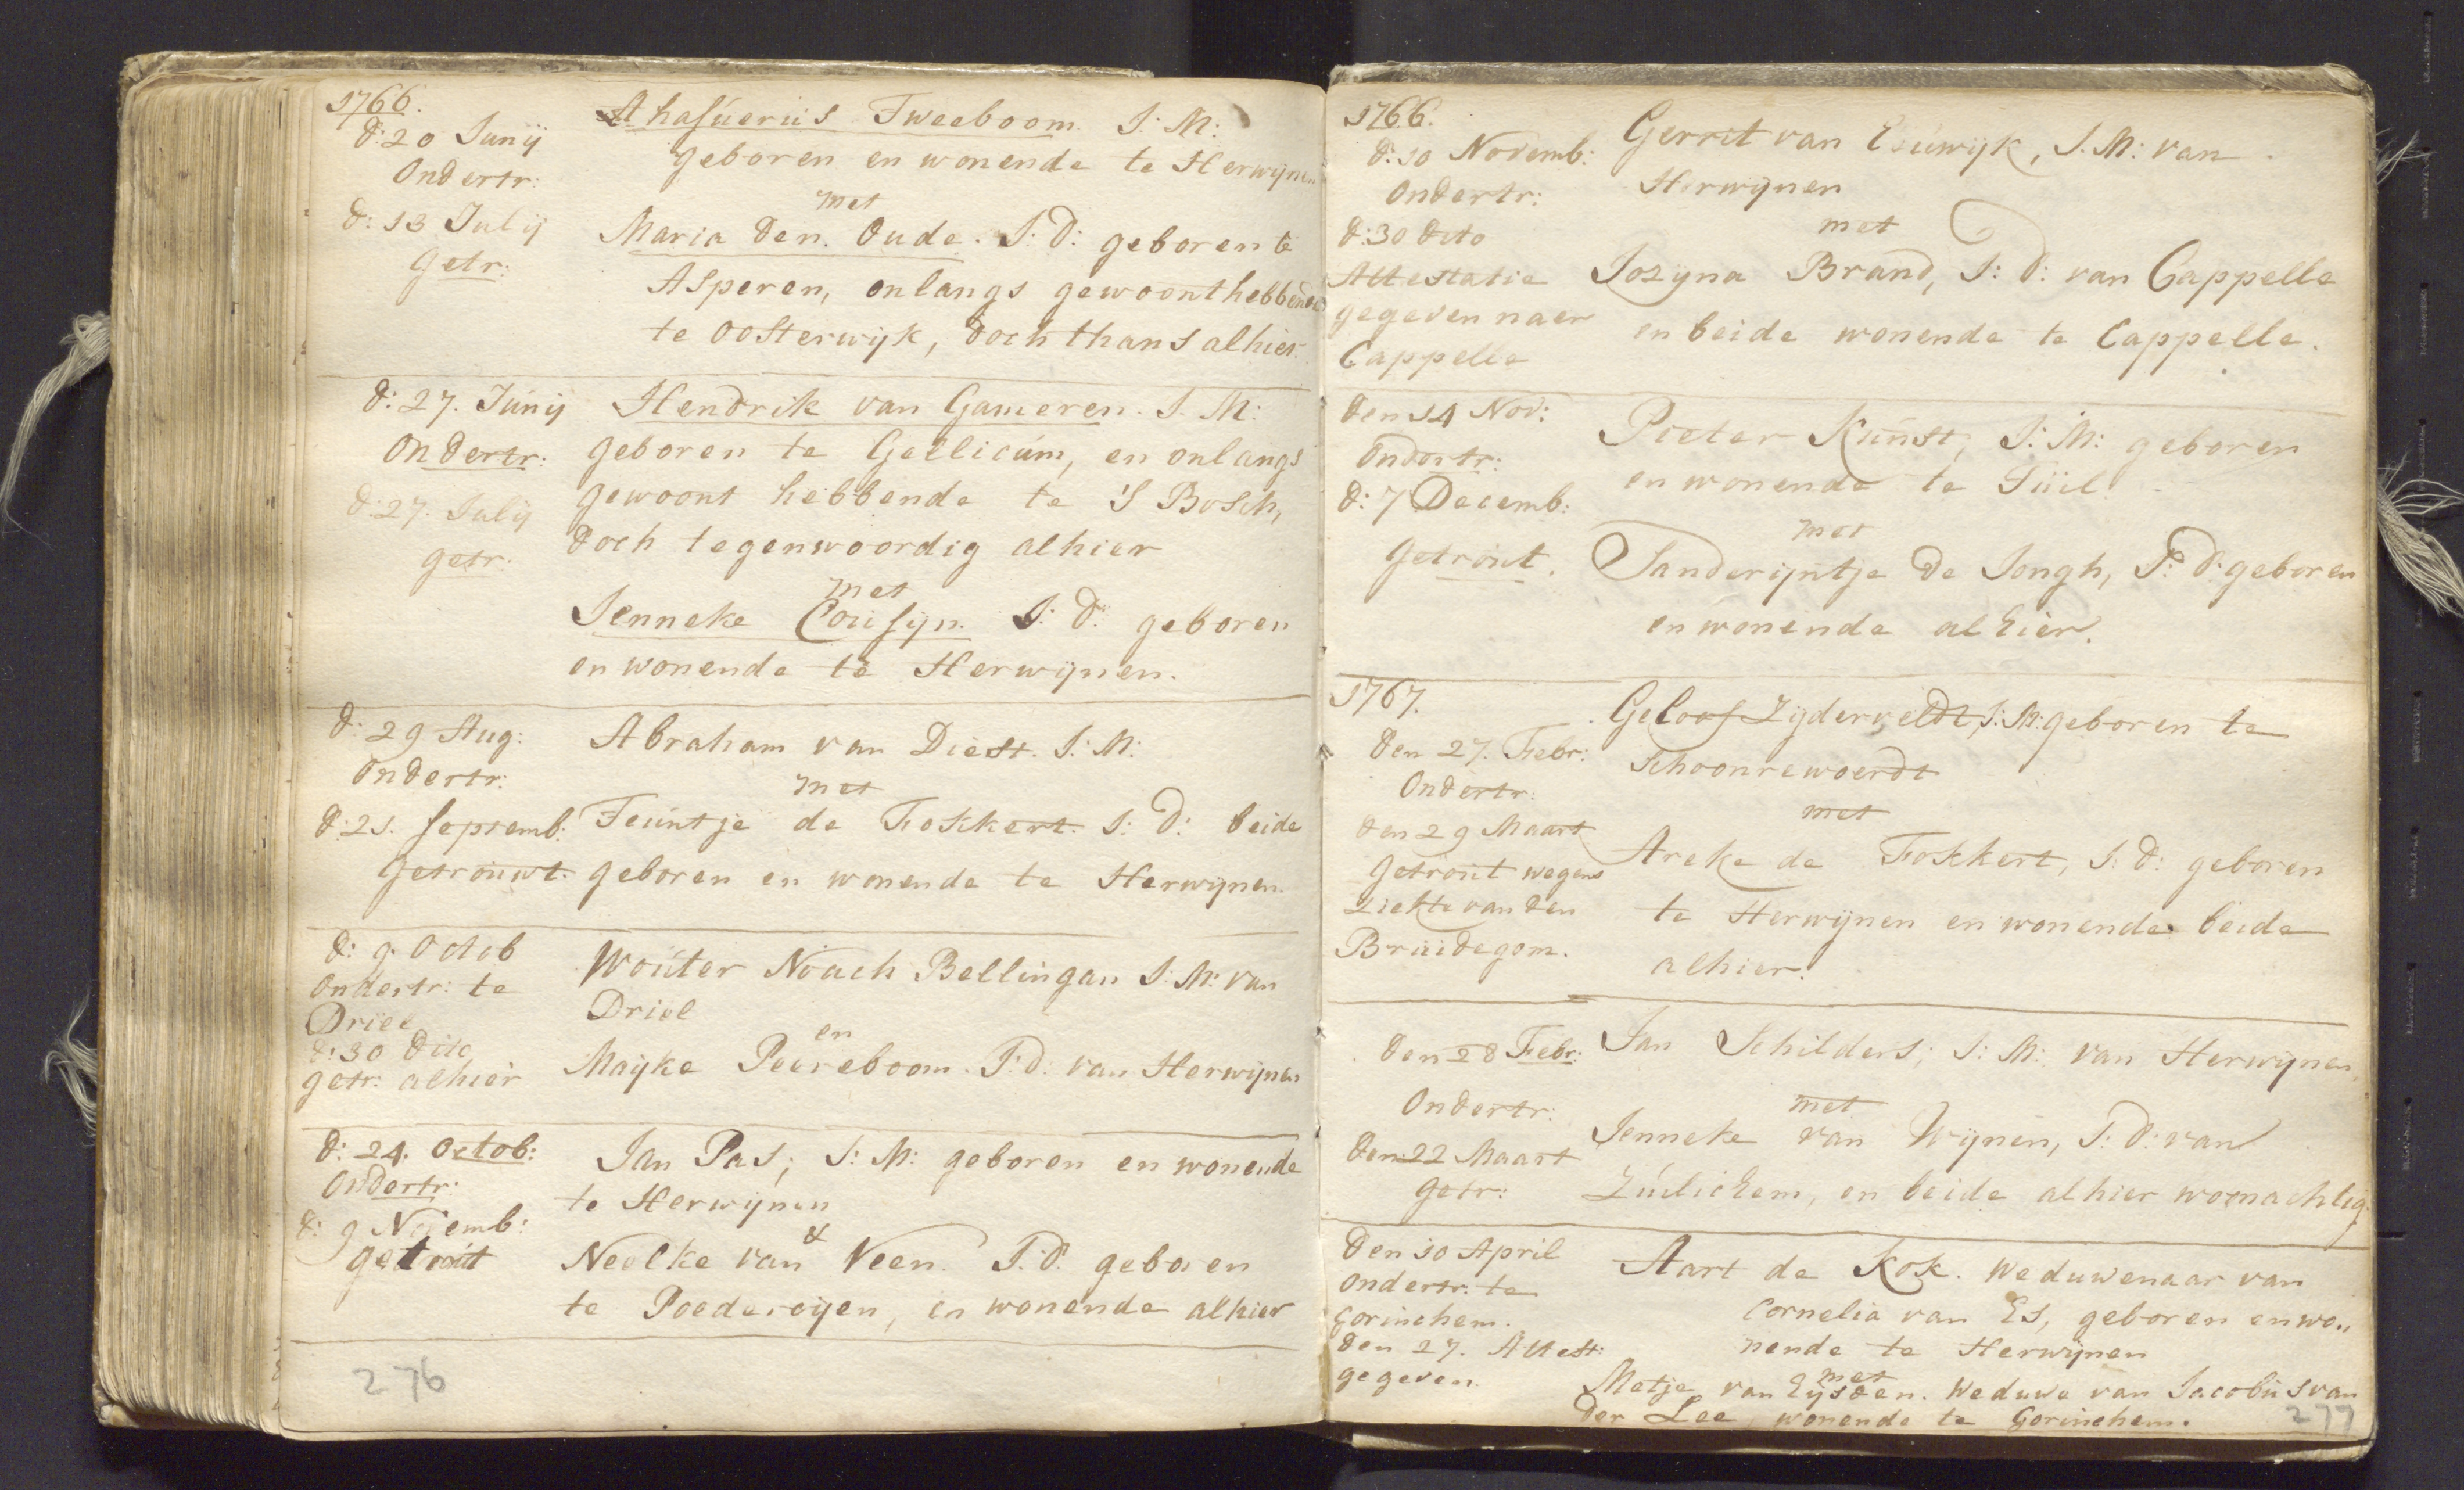 1766.
d: 20 Junij
Ondertr:
d: 13 Julij
Getr:
Ahasúerús Tweeboom J: M:
geboren en wonende te Herwijnen
met
Maria den Oude. J: D: geboren te
Asperen, onlangs gewoont hebbende
te Oosterwijk, doch thans alhier.
d: 27. Junij
Ondertr:
d: 27. Julij
getr:
Hendrik van Gameren. J. M:
geboren te Gellicúm, en onlangs
gewoont hebbende te 'S Bosch,
doch tegenwoordig alhier
met
Jenneke Cousijn. J: D: geboren
en wonende te Herwijnen.
d: 29 Aug:
Ondertr:
d: 21. Septemb:
getrouwt.
Abraham van Diest. J: M:
met
Teuntje de Fokkert. J: D: beide
geboren en wonende te Herwijnen.
d: 9. Octob
Ondertr: te
Driel
d: 30 dito
getr: alhier
Woúter Noach Bellingan J: M: van
Driel
en
Maijke Peereboom. J: d: van Herwijnen
d: 24. Octob:
Ondertr:
d: 9 Novemb:
getrout
Jan Pas; J: M: geboren en wonende
te Herwijnen
&
Neelke van Veen. J: d: geboren
te Poederoijen, en wonende alhier
276
1766.
d: 10 Novemb:
Ondertr:
d: 30 dito
Attestatie
gegeven naer
Cappelle
Gerrit van Esúwijk, J. M: van
Herwijnen
met
Jozyna Brand, J: d: van Cappelle
en beide wonende te Cappelle.
den 14 Nov:
Ondertr:
d: 7 Decemb:
Getrout.
Pieter Kúnst, J: M: geboren
en wonende te Tüil.
met
Sanderijntje de Jongh, J: d: geboren
en wonende alhier.
1767.
den 27. Febr:
Ondertr:
den 29 Maart
Getrout wegens
ziekte van den
Bruidegom.
Geloof Zijderveldt, J: M: geboren te
Schoonrewoerdt
met
Areke de Fokkert, J: d: geboren
te Herwijnen en wonende beide
alhier.
den 28 Febr:
Ondertr:
den 22 Maart
Getr:
Jan Schilders; J: M: van Herwijnen,
met
Jenneke van Wijnen, J: d: van
Zúilichem, en beide alhier woonachtig.
den 10 April
Ondertr: te
Gorinchem.
den 27. Attest:
gegeven.
Aart de Kok. Weduwenaar van
Cornelia van Es, geboren en wo„
nende te Herwijnen
met
Metje van Eijsden. Weduwe van Jacobus van
der Lee, wonende te Gorinchem.
277